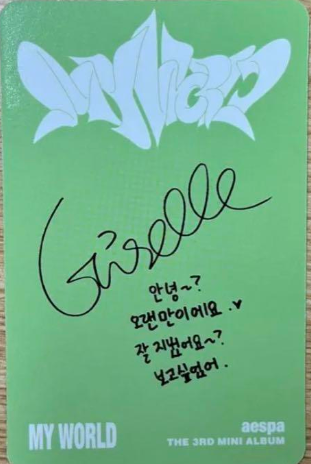 MY WORLD
Giselle
안녕~?
오랜만이에요.♥
잘 지냈어요~?
보고싶었어.
MY WORLD
aespa
THE 3RD MINI ALBUM